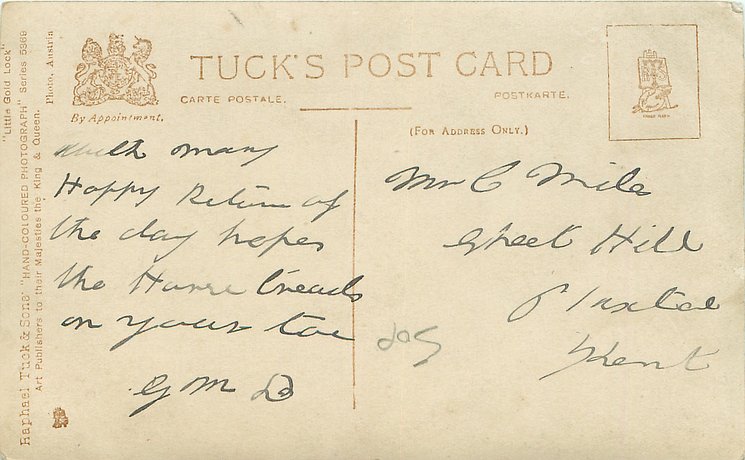 "Little Gold Lock"
Raphael Tuck & Sons' "HAND-COLOURED PHOTOGRAPH" Series 5369
Photo, Austria
Art Publishers to their Majesties the King & Queen.
By Appointment.
TUCK'S POST CARD
CARTE POSTALE.
POSTKARTE.
(FOR ADDRESS ONLY.)
with many
Happy Return of
the day hopes
the Horse treads
on your toe
G M D
Mr C Mile
Street Hill
Kent